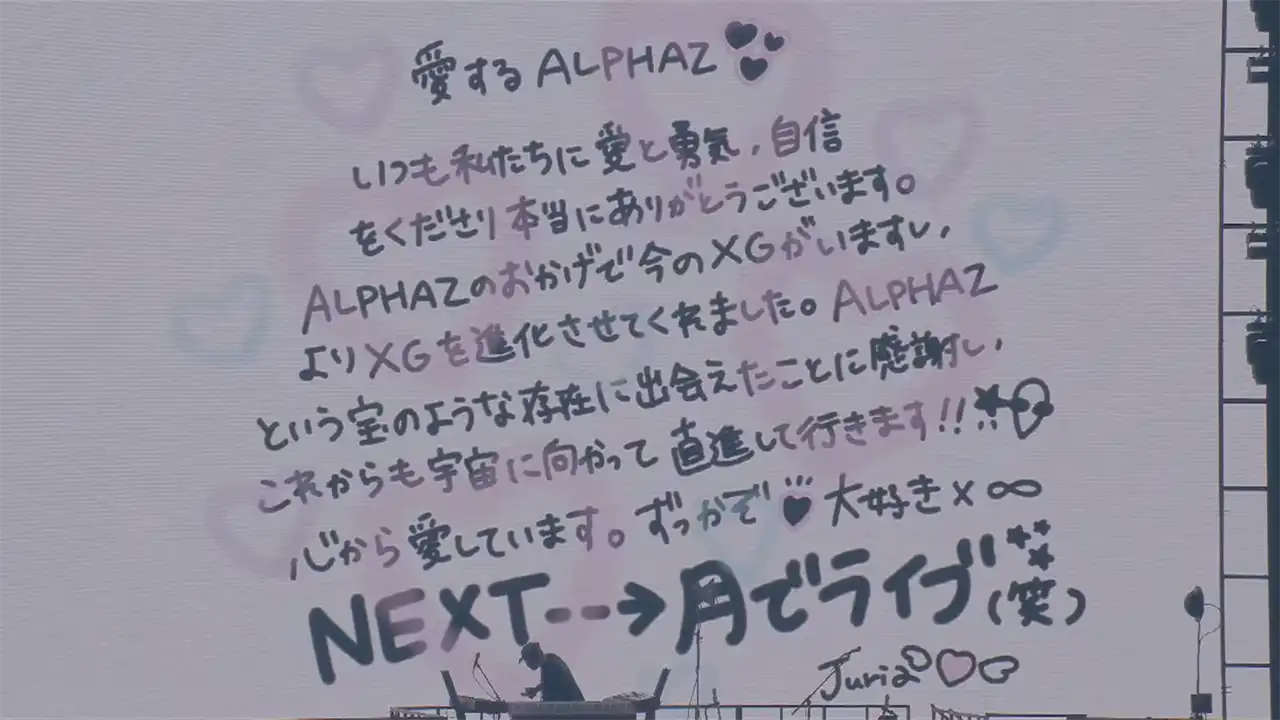 愛するALPHAZ
いつも私たちに愛と勇気、自信
をくださり本当にありがとうございます。
ALPHAZのおかげで今のXGがいますし、
よりXGを進化させてくれました。ALPHAZ
という宝のような存在に出会えたことに感謝し、
これからも宇宙に向かって直進して行きます!!
心から愛しています。ずっかで♥大好き×∞
NEXT--→月でライブ(笑)
Juria